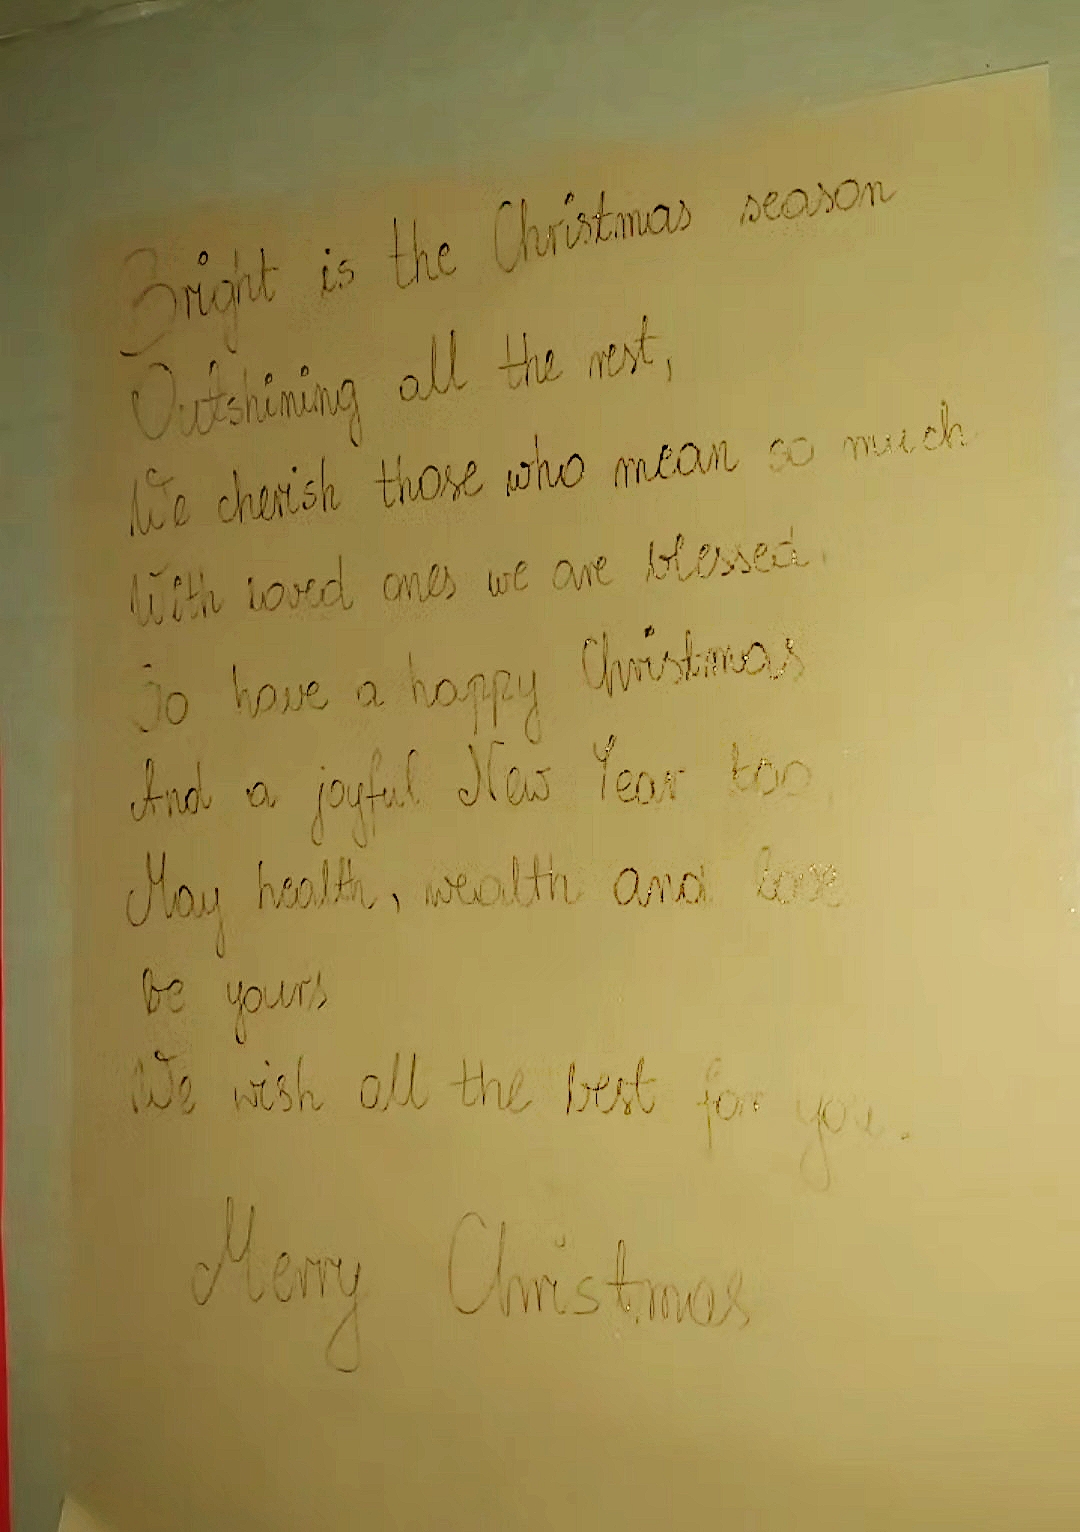 Bright is the Christmas season
Outshining all the rest,
We cherish those who mean so much
With loved ones we are blessed.
So have a happy Christmas
And a joyful New Year too,
May health, wealth and love
be yours
We wish all the best for you.
Merry Christmas